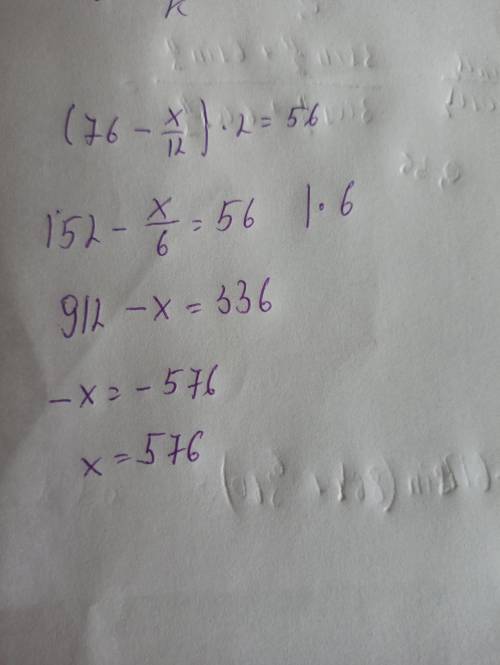 (76 - x/12) · 2 = 56
152 - x/6 = 56 | · 6
912 - x = 336
-x = -576
x = 576